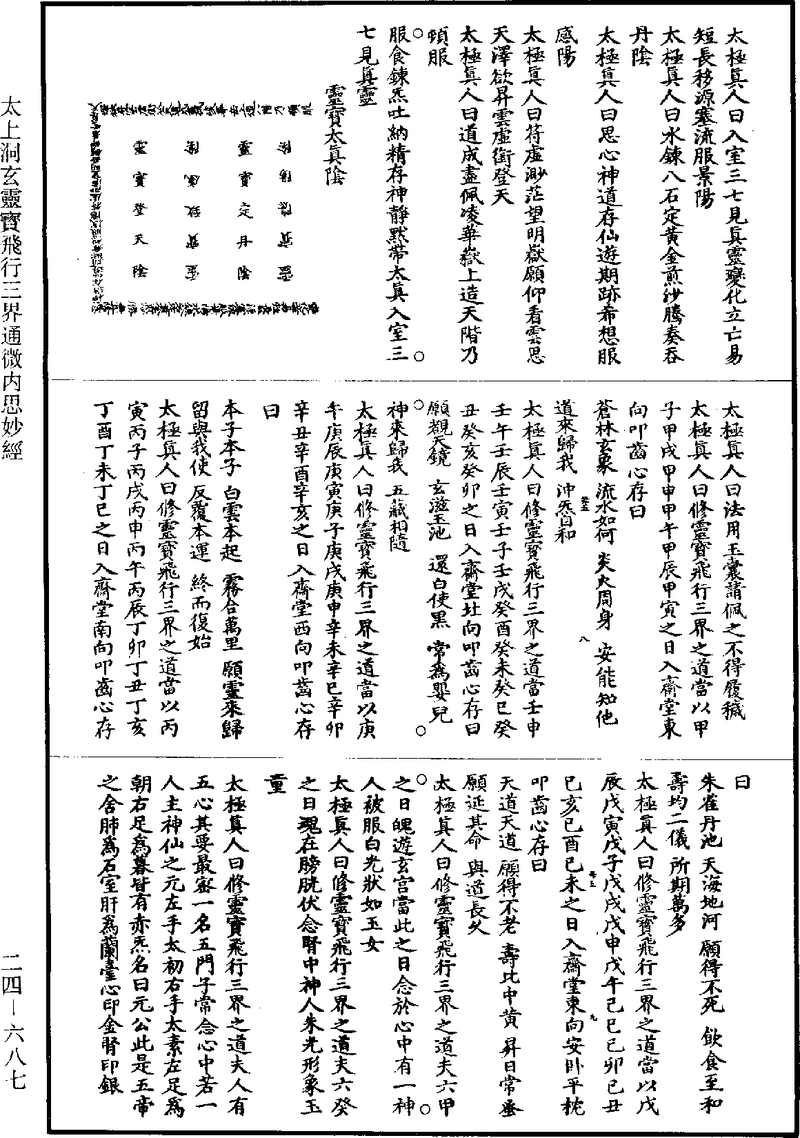 太上洞玄靈寶飛行三界通微内思妙經
二四—六八七
太極真人曰入室三七見真靈變化立亡易
短長移源塞流服景陽
太極真人曰水鍊八石定黃金煎沙騰奏吞
丹陰
太極真人曰思心神道存仙遊期跡希想服
感陽
太極真人曰符虛渺茫望明嶽願仰看雲思
天澤欲昇雲虛銜登天
太極真人曰道成盡佩凌華嶽上造天階乃
頓服
服食鍊炁吐納精存神靜默帶太真入室三
七見真靈
靈寶太真陰
靈寶定丹陰
靈寶登天陰
太極真人曰法用玉囊請佩之不得履穢
太極真人曰修靈寶飛行三界之道當以甲
子甲戌甲申甲午甲辰甲寅之日入齋堂東
向叩齒心存曰
蒼林玄象 流水如何 炎火周身 安能知他
道來歸我 沖炁自和
太極真人曰修靈寶飛行三界之道當壬申
壬午壬辰壬寅壬子壬戌癸酉癸未癸巳癸
丑癸亥癸卯之日入齋堂北向叩齒心存曰
願觀天鏡 玄滋玉池 還白使黑 常為嬰兒
神來歸我 五藏相隨
太極真人曰修靈寶飛行三界之道當以庚
午庚辰庚寅庚子庚戌庚申辛未辛巳辛卯
辛丑辛酉辛亥之日入齋堂西向叩齒心存
曰
本子本子 白雲本起 霧合萬里 願靈來歸
留與我使 反覆本運 終而復始
太極真人曰修靈寶飛行三界之道當以丙
寅丙子丙戌丙申丙午丙辰丁卯丁丑丁亥
丁酉丁未丁巳之日入齋堂南向叩齒心存
曰
朱雀丹池 天海地河 願得不死 飲食至和
壽均二儀 所期萬多
太極真人曰修靈寶飛行三界之道當以戊
辰戊寅戊子戊戌戊申戊午己巳己卯己丑
己亥己酉己未之日入齋堂東向安臥平枕
叩齒心存曰
天道天道 願得不老 壽比中黃 昇日常垂
願延其命 與道長久
太極真人曰修靈寶飛行三界之道夫六甲
之日魄遊玄宮當此之日念於心中有一神
人被服白光狀如玉女
太極真人曰修靈寶飛行三界之道夫六癸
之日魂在膀胱伏念腎中神人朱光形象玉
童
太極真人曰修靈寶飛行三界之道夫人有
五心其要最密一名五門子常念心中若一
人主神仙之元左手太初右手太素左足為
朝右足為暮皆有赤炁名曰元公此是五帝
之舍肺為石室肝為蘭臺心印金腎印銀